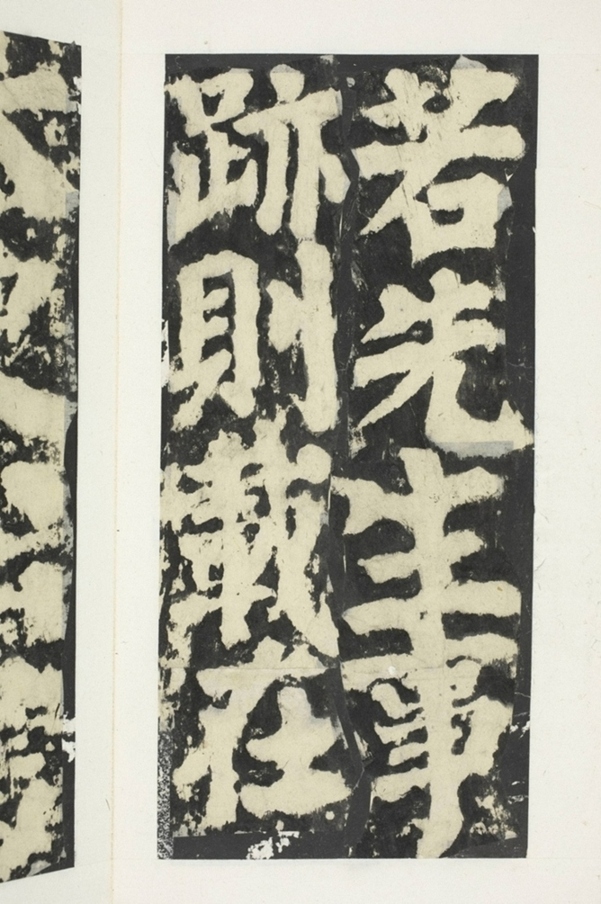 若先生事
跡則載在